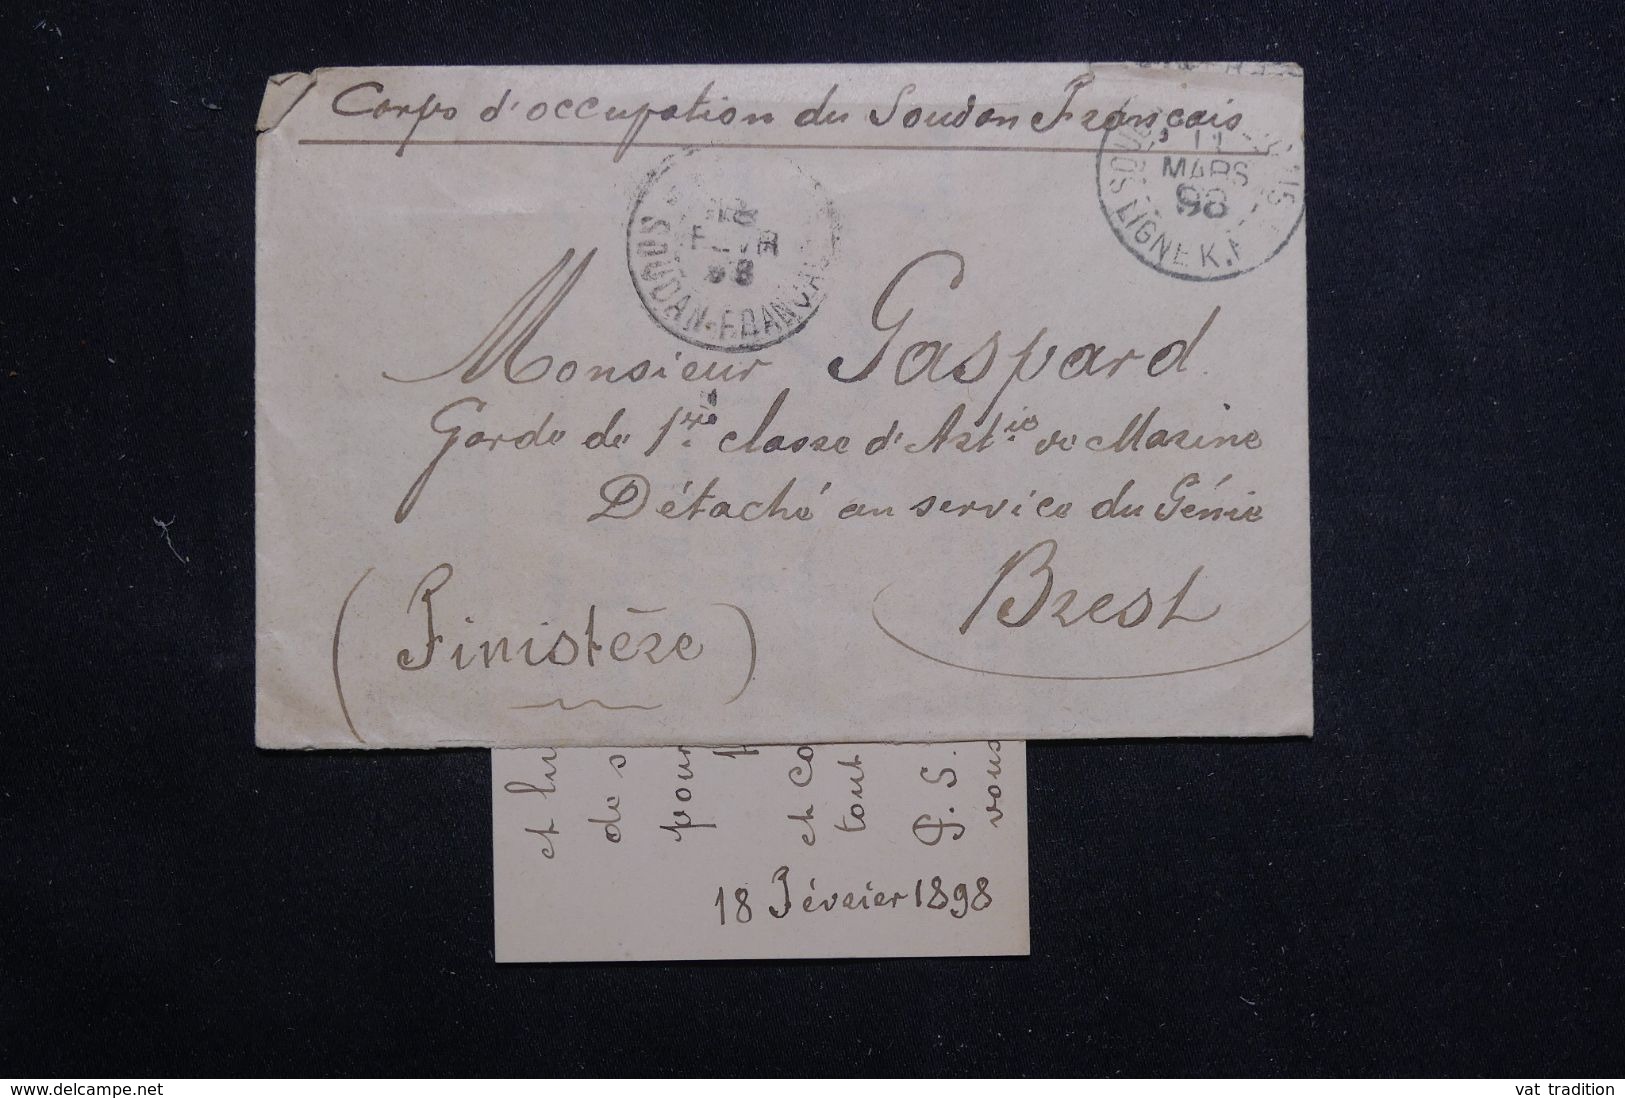 Corps d'occupation du Soudan Français
FEVR
98
SOUDAN-FRANÇAIS
11
MARS
98
LIGNE K.
Monsieur Gaspard
Garde de 1re classe d'Artie de Marine
Détaché au service du Génie
Brest
(Finistère)
et lu
de s
pour
et co
tout
P.S.
vous
18 Février 1898
www.delcampe.net
vat tradition